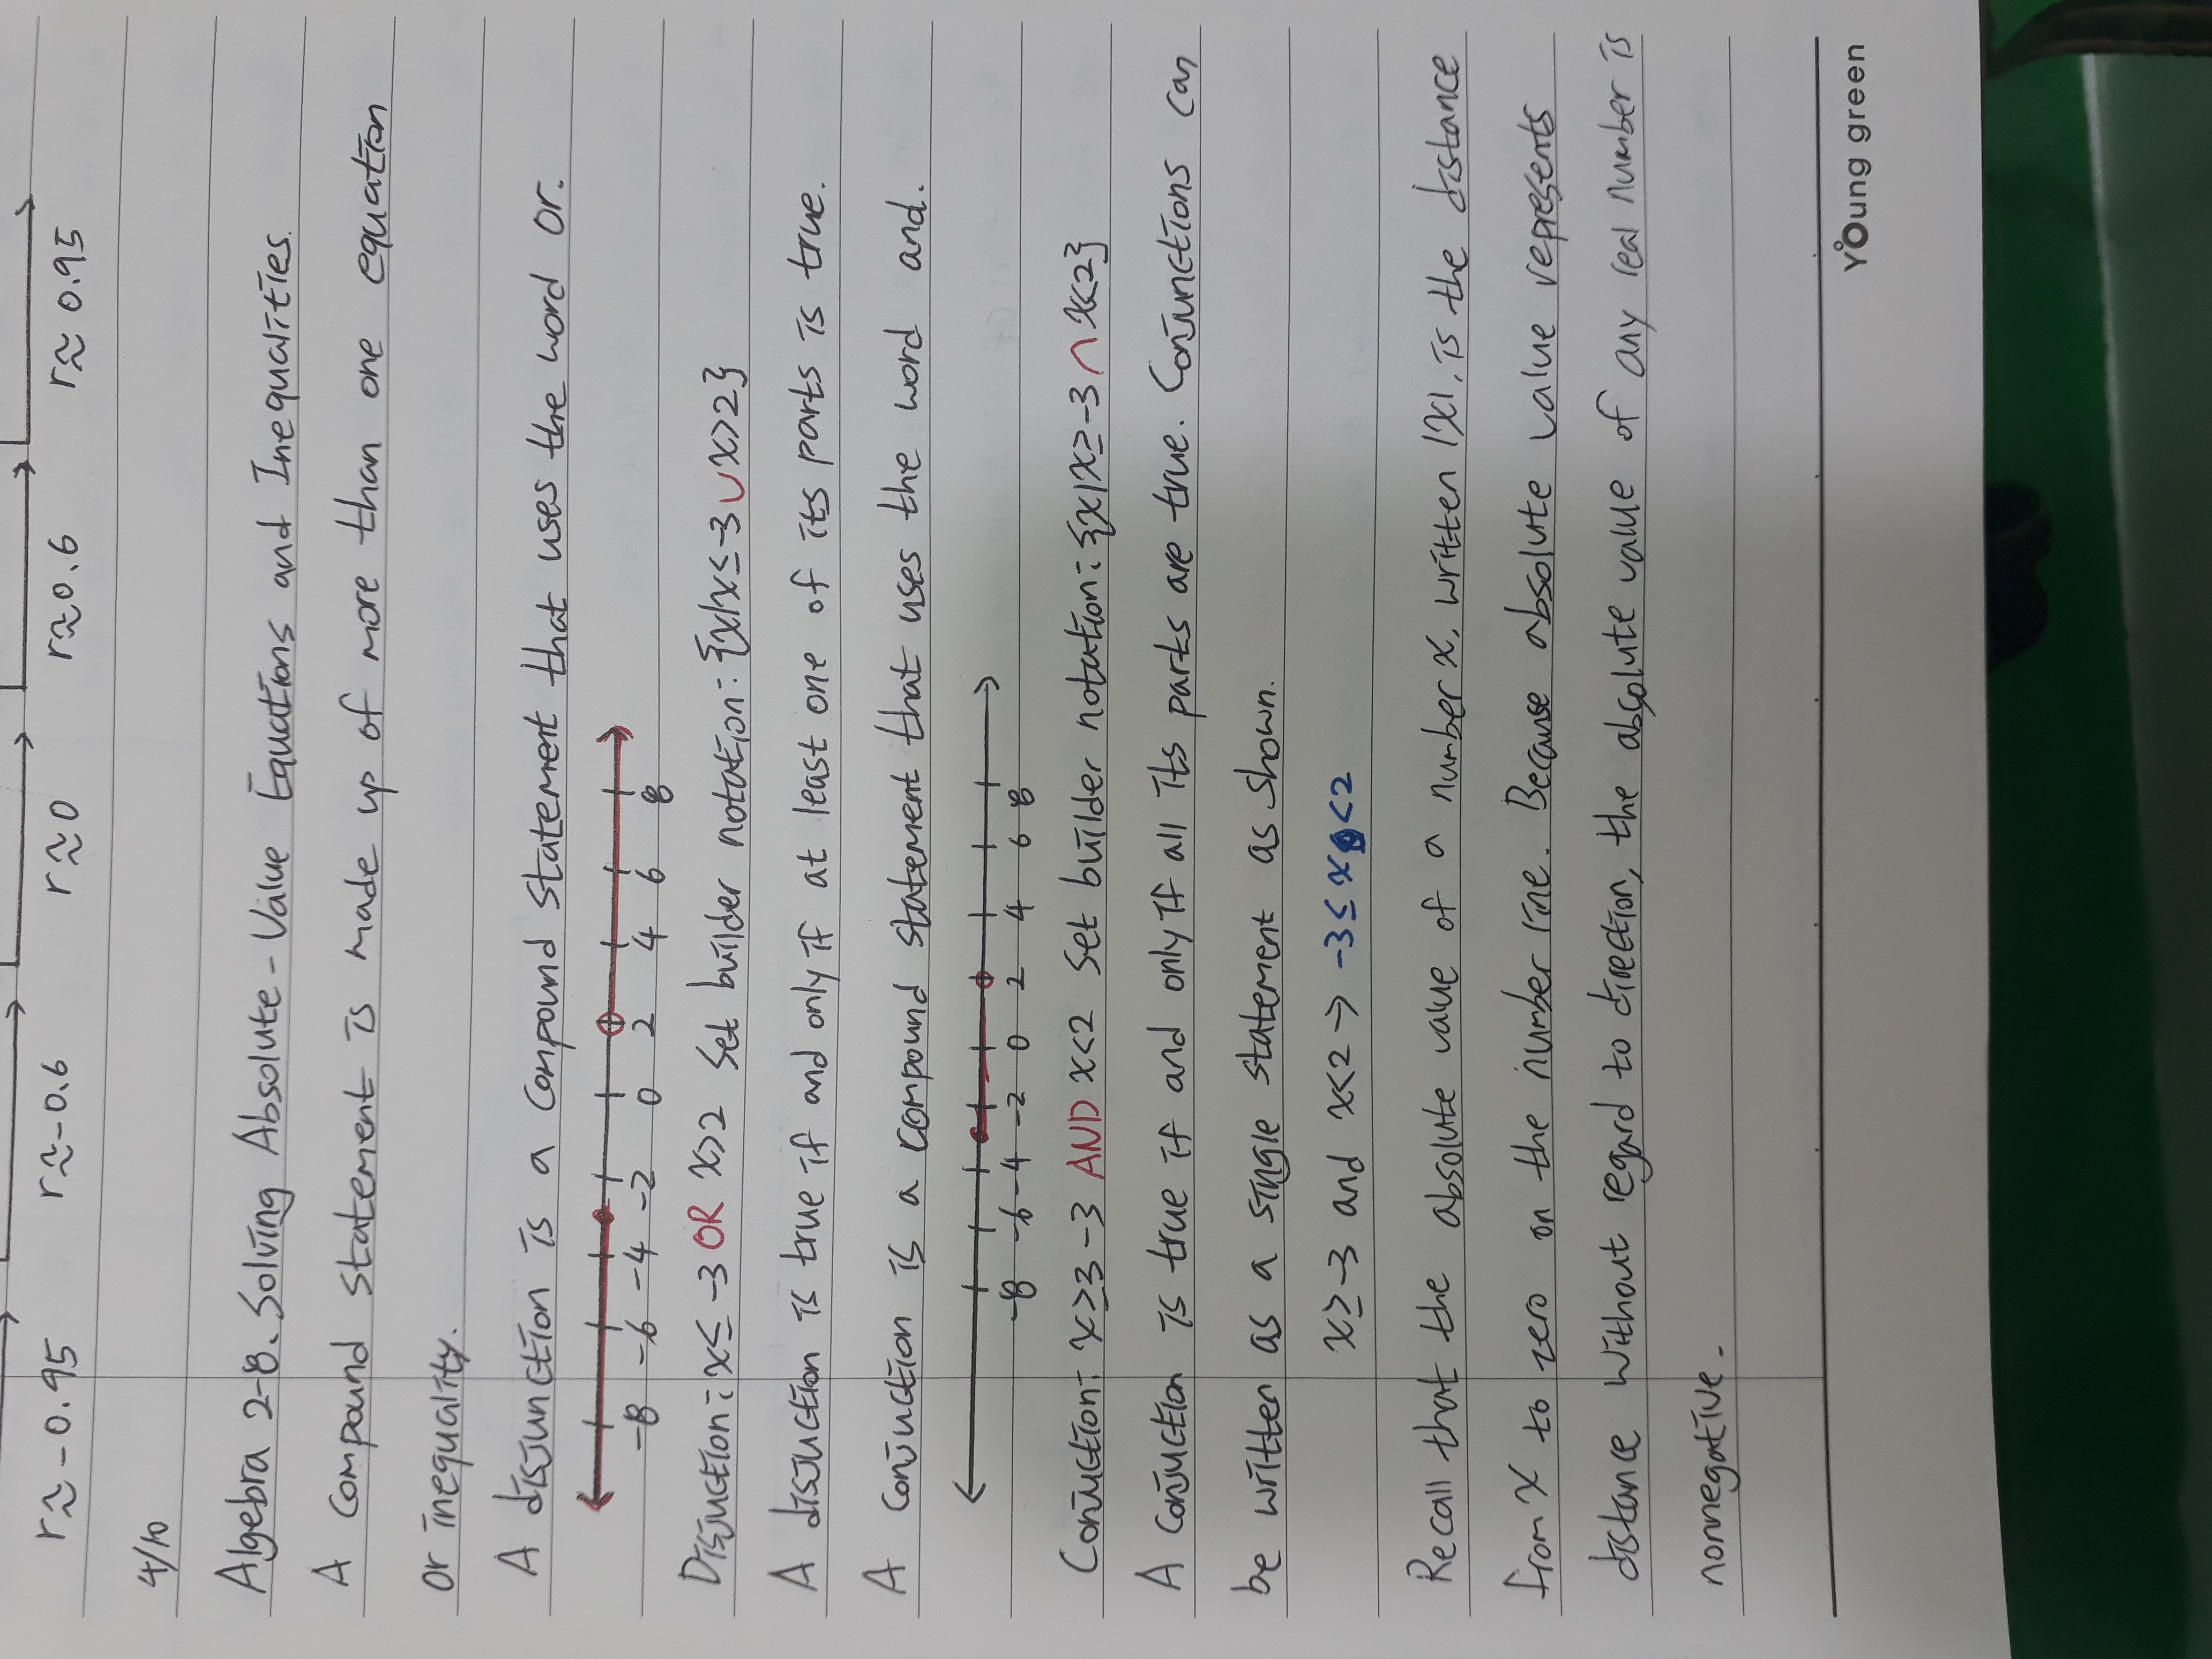 r≈-0.95 r≈-0.6 r≈0 r≈0.6 r≈0.95
4/10
Algebra 2-8. Solving Absolute-Value Equations and Inequalities.
A compound statement is made up of more than one equation
or inequality.
A disjunction is a compound statement that uses the word or.
-8 -6 -4 -2 0 2 4 6 8
Disjuction: x≤-3 OR x>2 Set builder notation: {x|x≤-3 ∪ x>2}
A disjuction is true if and only if at least one of its parts is true.
A conjuction is a compound statement that uses the word and.
-8 -6 -4 -2 0 2 4 6 8
Conjuction: x≥-3 AND x<2 Set builder notation: {x|x≥-3 ∩ x<2}
A conjuction is true if and only if all its parts are true. Conjunctions can
be written as a single statement as shown.
x≥-3 and x<2 → -3≤x<2
Recall that the absolute value of a number x, written |x|, is the distance
from x to zero on the number line. Because absolute value represents
distance without regard to direction, the absolute value of any real number is
nonnegative.
Young green